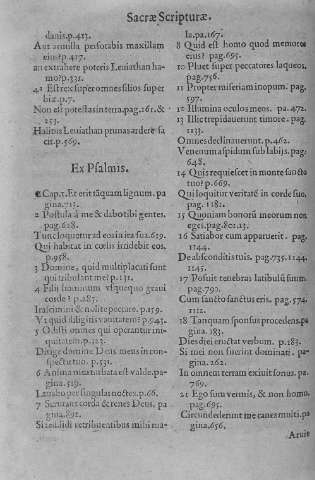 Sacræ Scripturæ.
danis. p.413.
Aut armilla perforabis maxillam
eius? p.417.
an extrahere poteris Leuiathan ha-
mo? p.331.
41 Est rex super omnes filios super
biæ p.7.
Non est potestas in terra. pag.161. &
253.
Halitus Leuiathan prunas ardere fa
cit. p.569.
Ex Psalmis.
Cap.1. Et erit tãquam lignum. pa
gina.713.
2 Postula à me & dabo tibi gentes.
pag.628.
Tunc loquetur ad eos in ira sua. 629.
Qui habitat in cœlis irridebit eos.
p.958.
3 Domine, quid multiplicati sunt
qui tribulant me? p.131.
4 Filij hominum vsquequo graui
corde? p.287.
Irascimini & nolite peccare. p.159.
Vt quid diligitis vanitatem? p.943.
5 Odisti omnes qui operantur ini-
quitatem. p.123.
Dirige domine Deus meus in con-
spectu tuo. p.531.
6 Anima mea turbata est valde. pa-
gina.519.
Lauabo per singulas noctes. p.66.
7 Scrutans corda & renes Deus. pa
gina.892.
Si reddidi retribuentibus mihi ma-
la. pa.167.
8 Quid est homo quod memor es
eius? pag.695.
10 Pluet super peccatores laqueos.
pag.756.
11 Propter miseriam inopum. pag.
597.
12 Illumina oculos meos. pa.472.
13 Illic trepidauerunt timore. pag.
1133.
Omnes declinauerunt. p.462.
Venenum aspidum sub labijs. pag.
648.
14 Quis requiescet in monte sancto
tuo? p.669.
Qui loquitur veritatẽ in corde suo.
pag.1181.
15 Quoniam bonorũ meorum non
eges. pag.802.13.
16 Satiabor cum apparuerit. pag.
1144.
De absconditis tuis. pag.735. 1144.
1145.
17 Posuit tenebras latibulũ suum.
pag.790.
Cum sancto sanctus eris. pag.574.
1112.
18 Tanquam sponsus procedens. pa
gina.183.
Dies diei eructat verbum. p.183.
Si mei non fuerint dominati. pa-
gina.262.
In omnem terram exiuit sonus. pa.
769.
21 Ego sum vermis, & non homo.
pag.695.
Circundederunt me canes multi. pa
gina.656.
Aruit